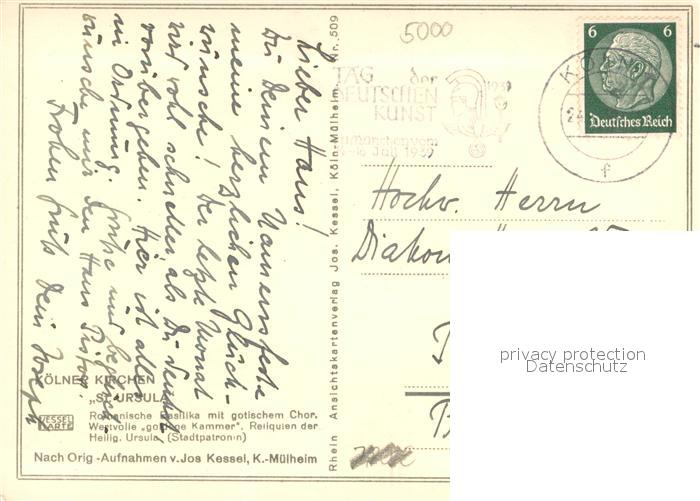 Lieber Hans!
Zu Deinem Namensfeste
meine herzlichen Glück-
wünsche! Der letzte Monat
wird wohl schneller als Du denkst
vorübergehen. Hier ist alles
in Ordnung. Grüße und beglück-
wünsche mir den Hans
Frohen Gruß Dein Joseph
KÖLNER KIRCHEN
„ST. URSULA"
KESSEL
KARTE
Romanische Basilika mit gotischem Chor.
Wertvolle „goldene Kammer", Reliquien der
Heilig. Ursula (Stadtpatronin)
Nach Orig.-Aufnahmen v. Jos Kessel, K.-Mülheim
Rhein Ansichtskartenverlag Jos. Kessel, Köln-Mülheim Nr. 509
5000
TAG der
DEUTSCHEN
KUNST
1939
zu München vom
Juli 1939
KÖLN
24
f
6 6
Deutsches Reich
Hochw. Herrn
Diakon
privacy protection
Datenschutz